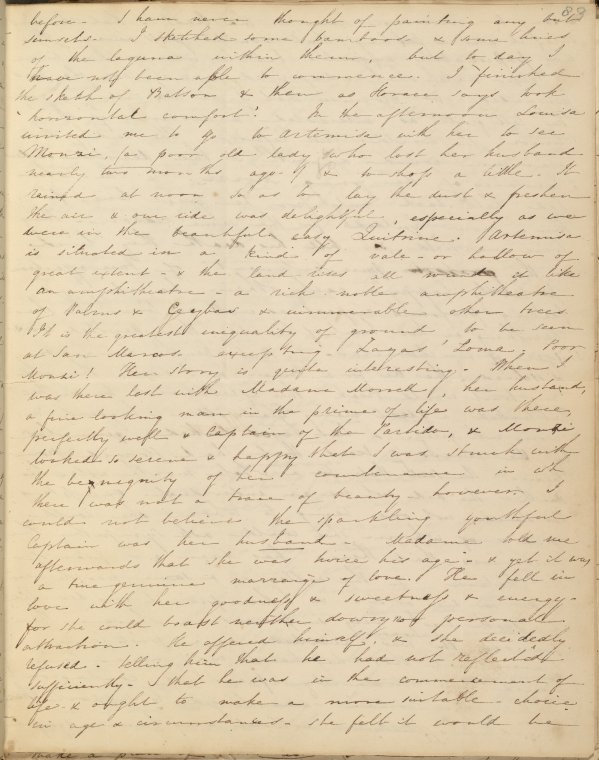 83
before. I have never thought of painting any but
sunsets. I sketched some bamboos & some lines
of the laguna within them, but to day I
have not been able to commence. I finished
the sketch of Batson & then as Horace says took
"horizontal comfort". In the afternoon Louisa
invited me to go to Artemisa with her to see
Monzi, (a poor old lady who lost her husband
nearly two months ago -) & to shop a little. It
rained at noon so as to lay the dust & freshen
the air & our ride was delightful, especially as we
were in the beautiful easy Quitrine. Artemisa
is situated in a kind of vale - or hollow of
great extent - & the land rises all round it like
an amphitheatre - a rich noble amphitheatre
of Palms & Ceybas & innumerable other trees.
It is the greatest inequality of ground to be seen
at San Marcos excepting Zayas' Loma. Poor
Monzi! Her story is quite interesting. When I
was there last with Madame Morrell, her husband,
a fine looking man in the prime of life was there,
perfectly well & Captain of the Partido, & Monzi
looked so serene & happy that I was struck with
the benignity of her countenance in wh
there was not a trace of beauty however. I
could not believe the sparkling youthful
Captain was her husband. Madame told me
afterwards that she was twice his age - & yet it was
a true genuine marriage of love. He fell in
love with her goodness & sweetness & energy -
for she could boast neither dowry nor personal
attraction. He offered himself, & she decidedly
refused - telling him that he had not reflected
sufficiently - that he was in the commencement of
life & ought to make a more suitable choice
in age & circumstances - she felt it would be